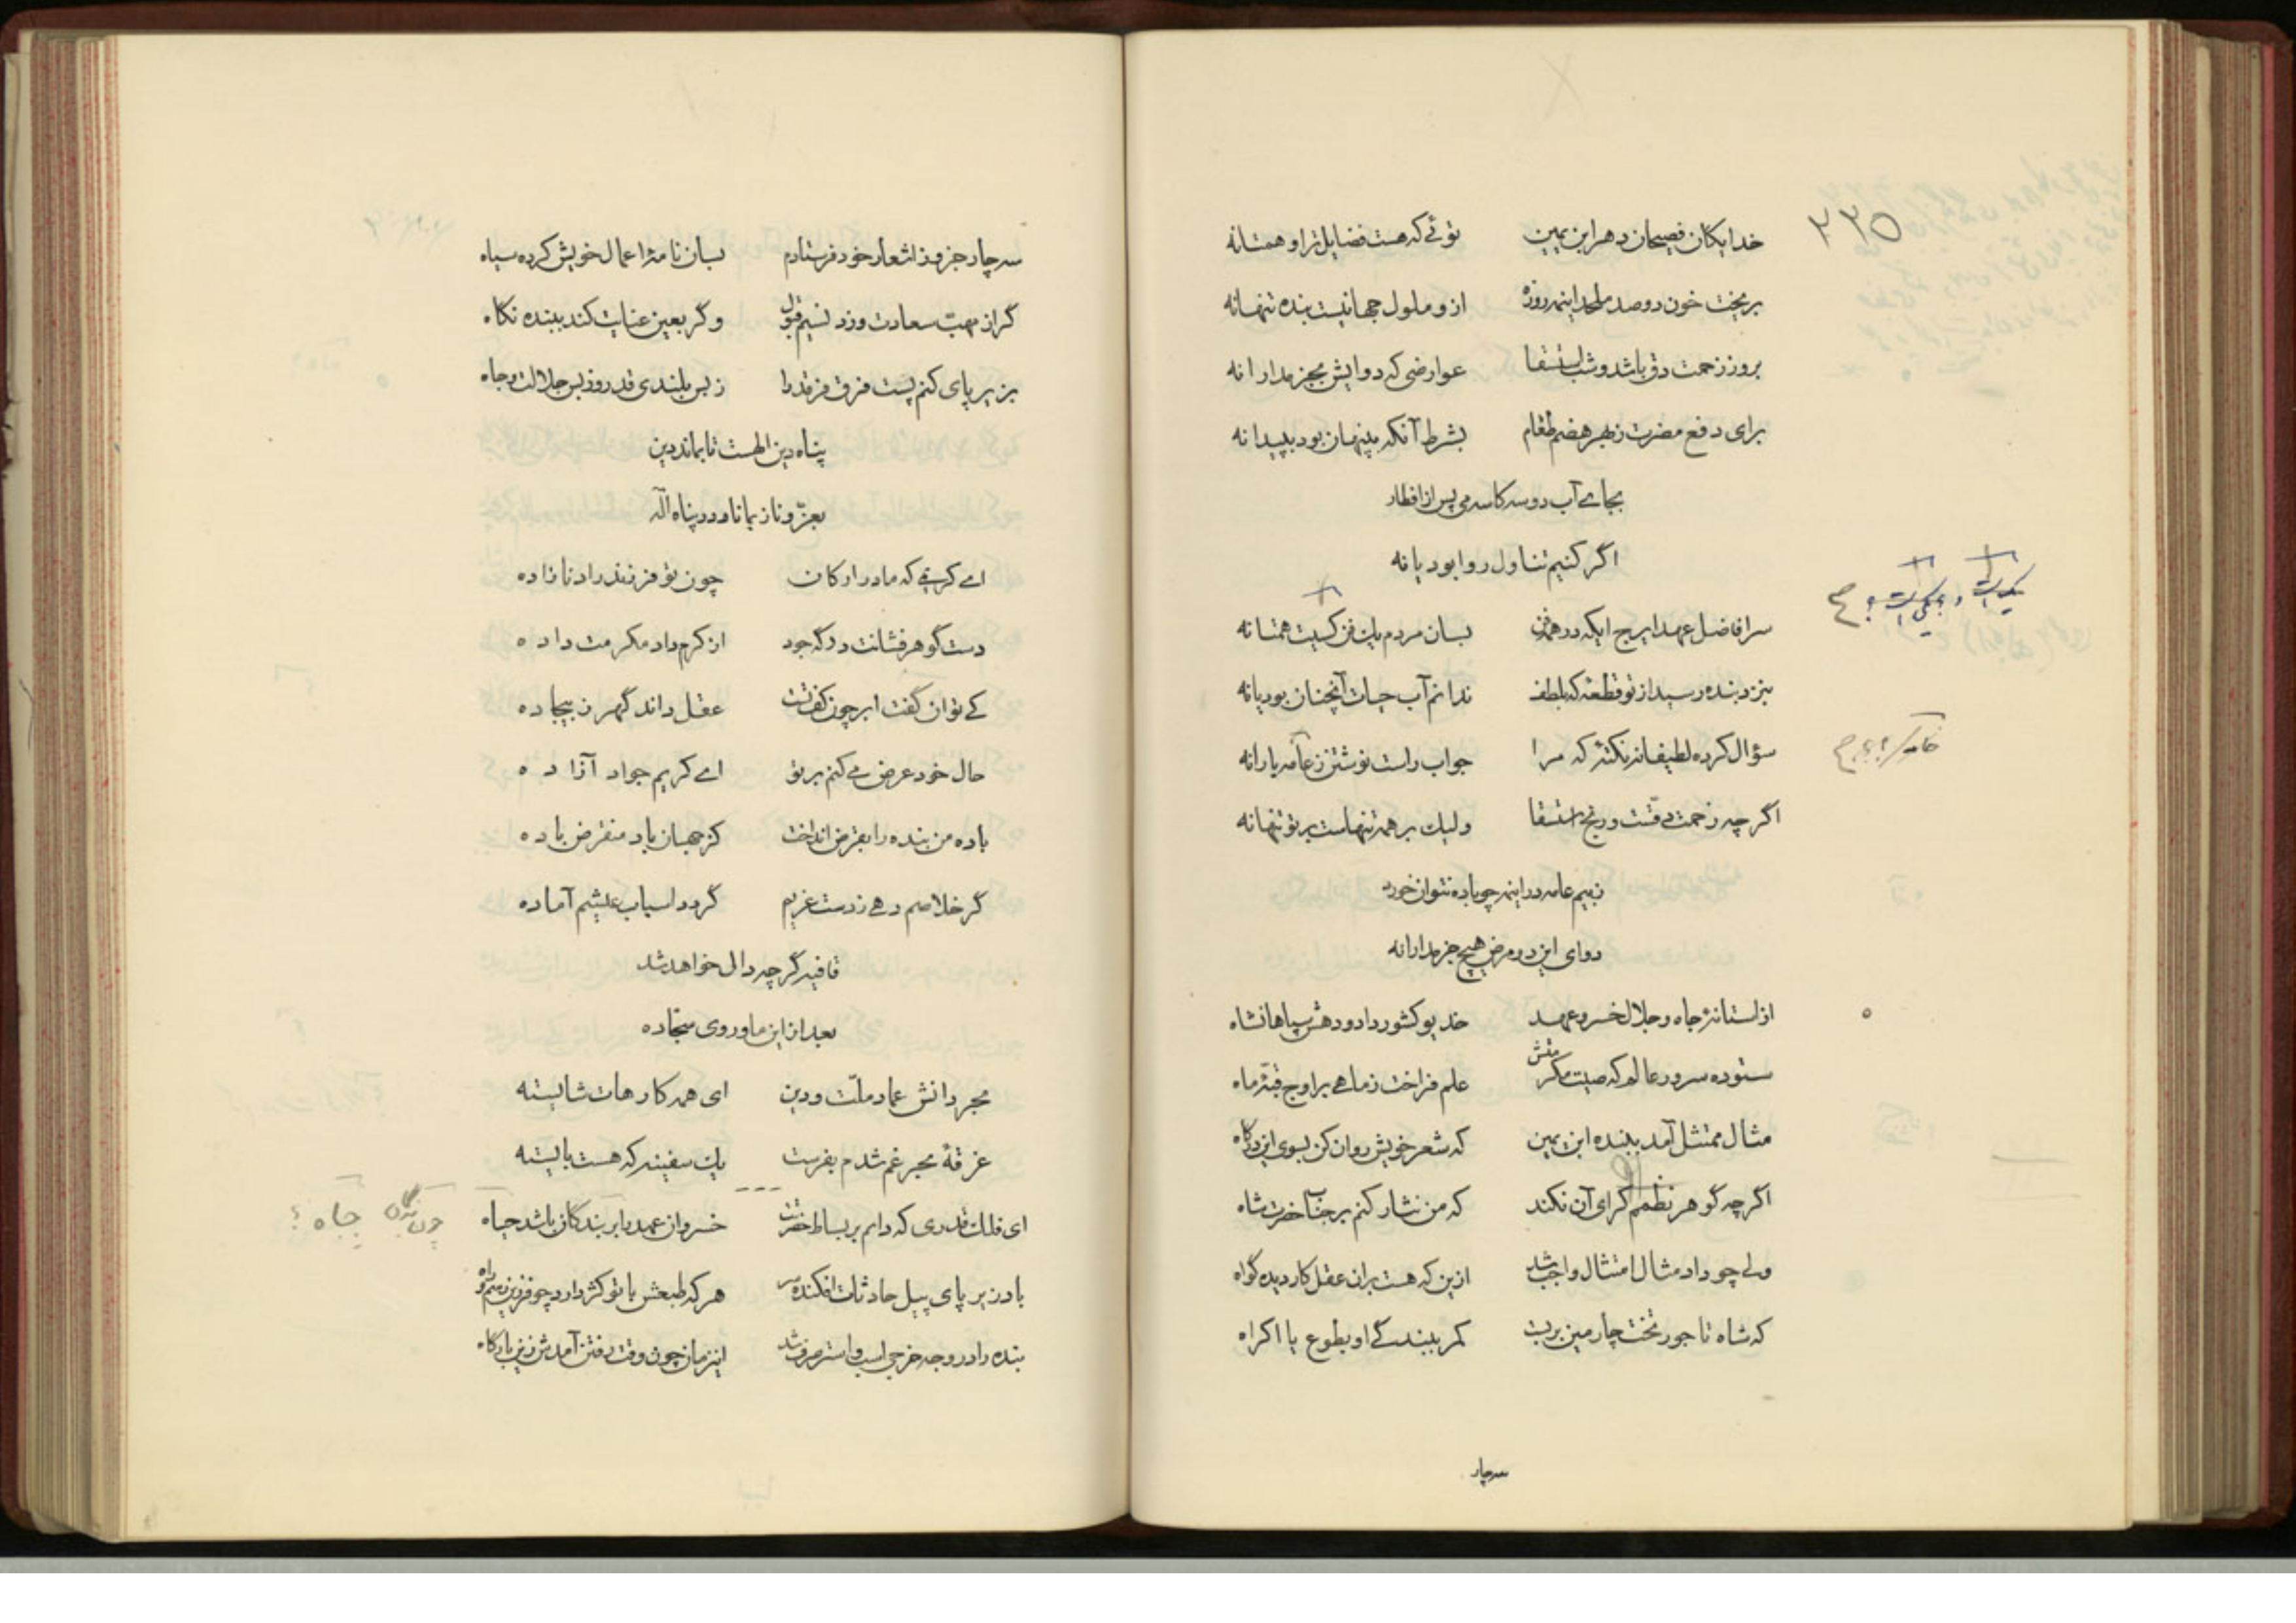 ۲۳۵
خدایگان فصیحان دهر ابن یمین توئی که هست فضایل ترا و همتا نه
بریخت خون دو صد ملحد اینهمه روزه ازو ملول جهانیست بنده تنها نه
بروز زحمت دق باشد و شب استسقا عوارضی که دوایش بجز مدارا نه
برای دفع مضرت ز بهر هضم طعام بشرط آنکه بپنهان بود بپیدا نه
بجاے آب دو سه کاسه می پس از افطار
اگر کنیم تناول روا بود یا نه
سر افاضل عهد ایرج ایکه در همه فن بسان مردم یک فن کسیت همتا نه
بنزد بنده رسید از تو قطعهٔ که بلطف ندانم آب حیات آنچنان بود یا نه
سؤال کرده لطیفانه نکتهٔ که مرا جواب راست نوشتن ز عامه یارا نه
اگر چه زحمت دقست و رنج استسقا ولیک بر همه تنهاست بر تو تنها نه
ز بیم عامه در اینه چو باده نتوان خورد
دوای این دو مرض هیچ جز مدارا نه
از آستانهٔ جاه و جلال خسرو عهد خدیو کشور داد و دهش سپاهانشاه
ستوده سرور عالم که صیت مکرمتش علم فراخت ز ماهی بر اوج قبّهٔ ماه
مثال ممتثل آمد ببنده ابن یمین که شعر خویش روان کن بسوی این درگاه
اگر چه گوهر نظمم کرای آن نکند که من نثار کنم بر جناب حضرت شاه
ولے چو داد مثال امتثال واجب شد ازین که هست بران عقل کار دیده گواه
که شاه تاجور تخت چارمین بربست کمر ببندگے او بطوع یا اکراه
سه چار
سه چار جزو ز اشعار خود فرستادم بسان نامهٔ اعمال خویش کرده سیاه
گر از مهبّ سعادت وزد نسیم قبول و گر بعین عنایت کند ببنده نگاه
بزیر پای کنم پست فرق فرقد را ز بس بلندی قدر و ز بس جلالت و جاه
پناه دین الهست تا بماند دین
بعزّ و ناز بماناد در پناه الٓه
اے کریمے که مادر ارکان چون تو فرزند راد نازاده
دست گوهر فشانت در گه جود از کرم داد مکرمت داده
کے توان گفت ابر چون کف تست عقل داند گهر ز بیجاده
حال خود عرض مے کنم بر تو اے کریم جواد آزاده
باده من بنده را بقرض انداخت کز جهان باد منقرض باده
گر خلاصم دهے ز دست غریم گردد اسباب عیشم آماده
قافیه گر چه دال خواهد شد
بعد ازین ما و روی سجّاده
بحر دانش عماد ملّت و دین ای همه کارهات شایسته
غرقهٔ بحر غم شدم بفرست یک سفینه که هست بایسته
ای فلک قدری که دایم بر بساط حضرتت خسروان عهد بابر بندگان باشد جباه
باد زیر پای پیل حادثات افکنده سر هر که طبعش با تو کژ دارد چو فرزین رسم و راه
بنده را در وجه خرجی اسب و استر صرف شد اینزمان چون وقت رفتن آمدش زین بارگاه